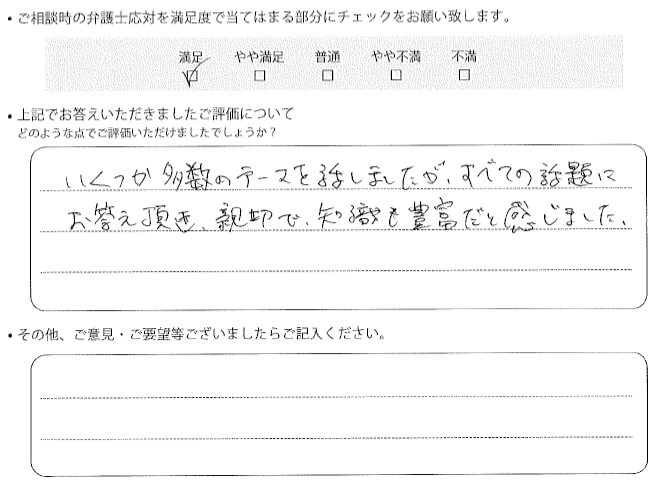 ・ご相談時の弁護士応対を満足度で当てはまる部分にチェックをお願い致します。
満足 やや満足 普通 やや不満 不満
☑ □ □ □ □
・上記でお答えいただきましたご評価について
どのような点でご評価いただけましたでしょうか?
いくつか多数のテーマを話しましたが、すべての話題に
お答え頂き、親切で、知識も豊富だと感じました。
・その他、ご意見・ご要望等ございましたらご記入ください。